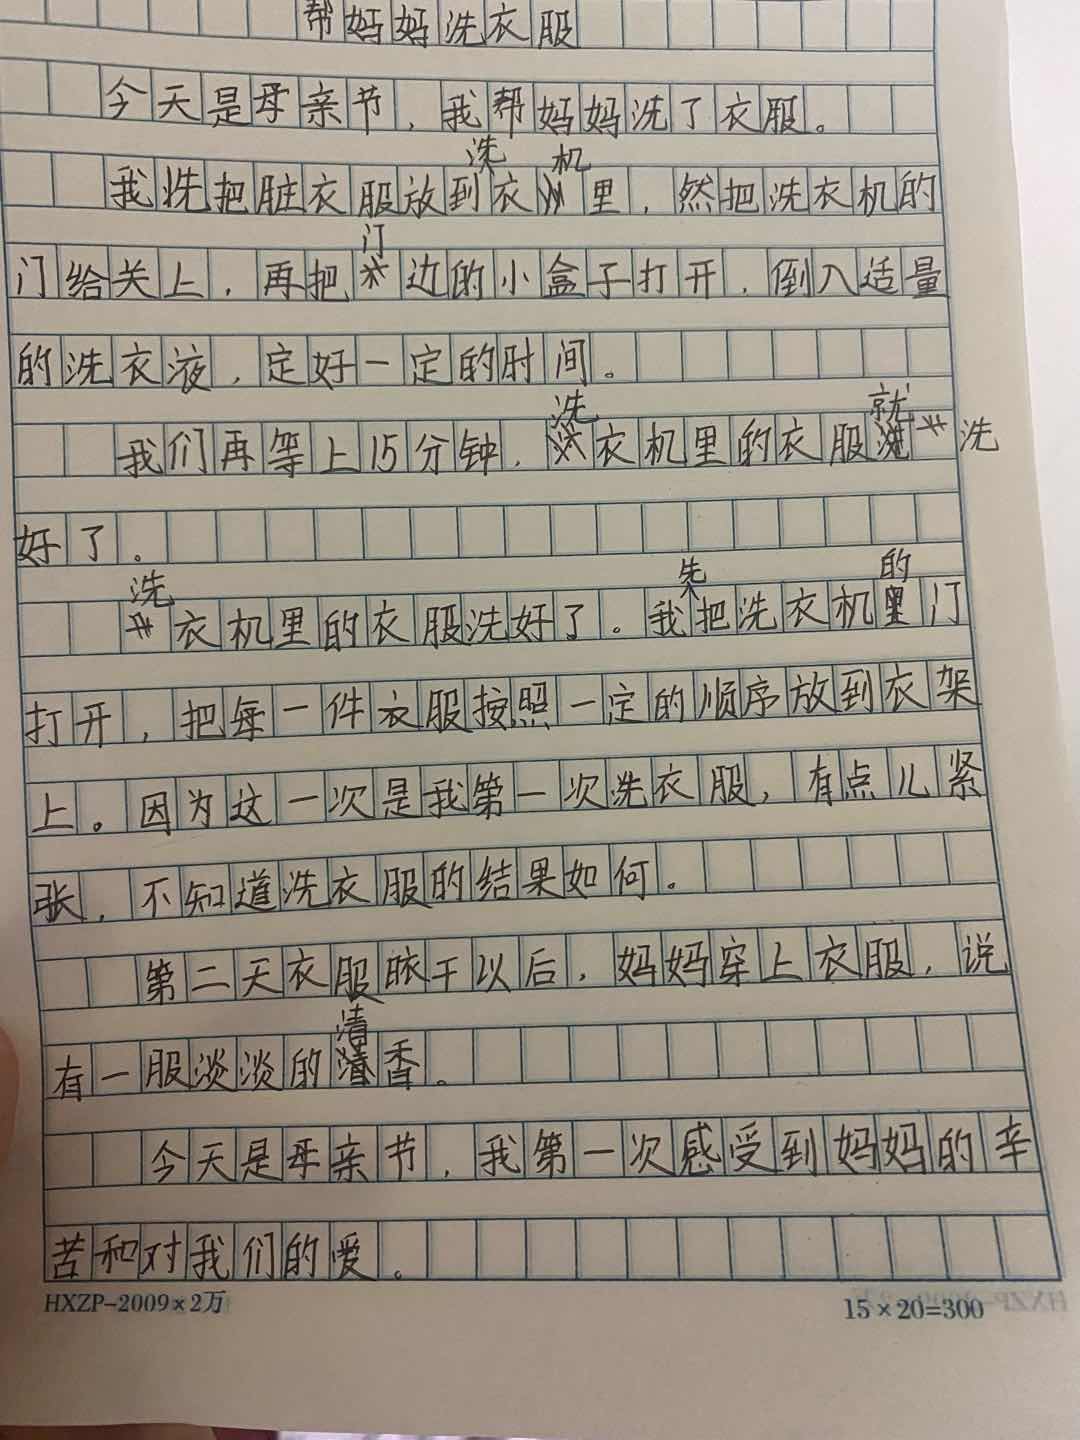 帮妈妈洗衣服
今天是母亲节，我帮妈妈洗了衣服。
我洗把脏衣服放到洗衣机里，然把洗衣机的
门给关上，再把门边的小盒子打开，倒入适量
的洗衣液，定好一定的时间。
我们再等上15分钟，洗衣机里的衣服就洗
好了。
洗衣机里的衣服洗好了。我先把洗衣机的门
打开，把每一件衣服按照一定的顺序放到衣架
上。因为这一次是我第一次洗衣服，有点儿紧
张，不知道洗衣服的结果如何。
第二天衣服晾干以后，妈妈穿上衣服，说
有一服淡淡的清香。
今天是母亲节，我第一次感受到妈妈的辛
苦和对我们的爱。
HXZP-2009×2万
15×20=300